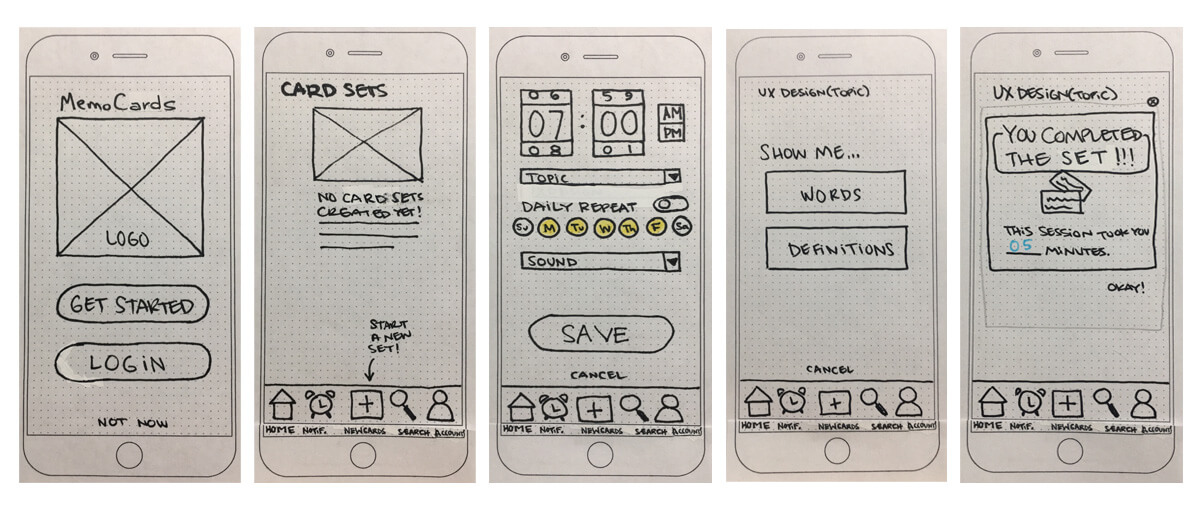 MemoCards
LOGO
GET STARTED
LOGIN
NOT NOW
CARD SETS
NO CARD SETS
CREATED YET!
START
A NEW
SET!
HOME NOTIF. NEWCARDS SEARCH ACCOUNT
06 59
07 : 00 AM
PM
08 01
TOPIC
DAILY REPEAT
Su M Tu W Th F Sa
SOUND
SAVE
CANCEL
HOME NOTIF. NEWCARDS SEARCH ACCOUNT
UX DESIGN(TOPIC)
SHOW ME...
WORDS
DEFINITIONS
CANCEL
HOME NOTIF. NEWCARDS SEARCH ACCOUNT
UX DESIGN(TOPIC)
YOU COMPLETED
THE SET!!!
THIS SESSION TOOK YOU
05 MINUTES.
OKAY!
HOME NOTIF. NEWCARDS SEARCH ACCOUNT